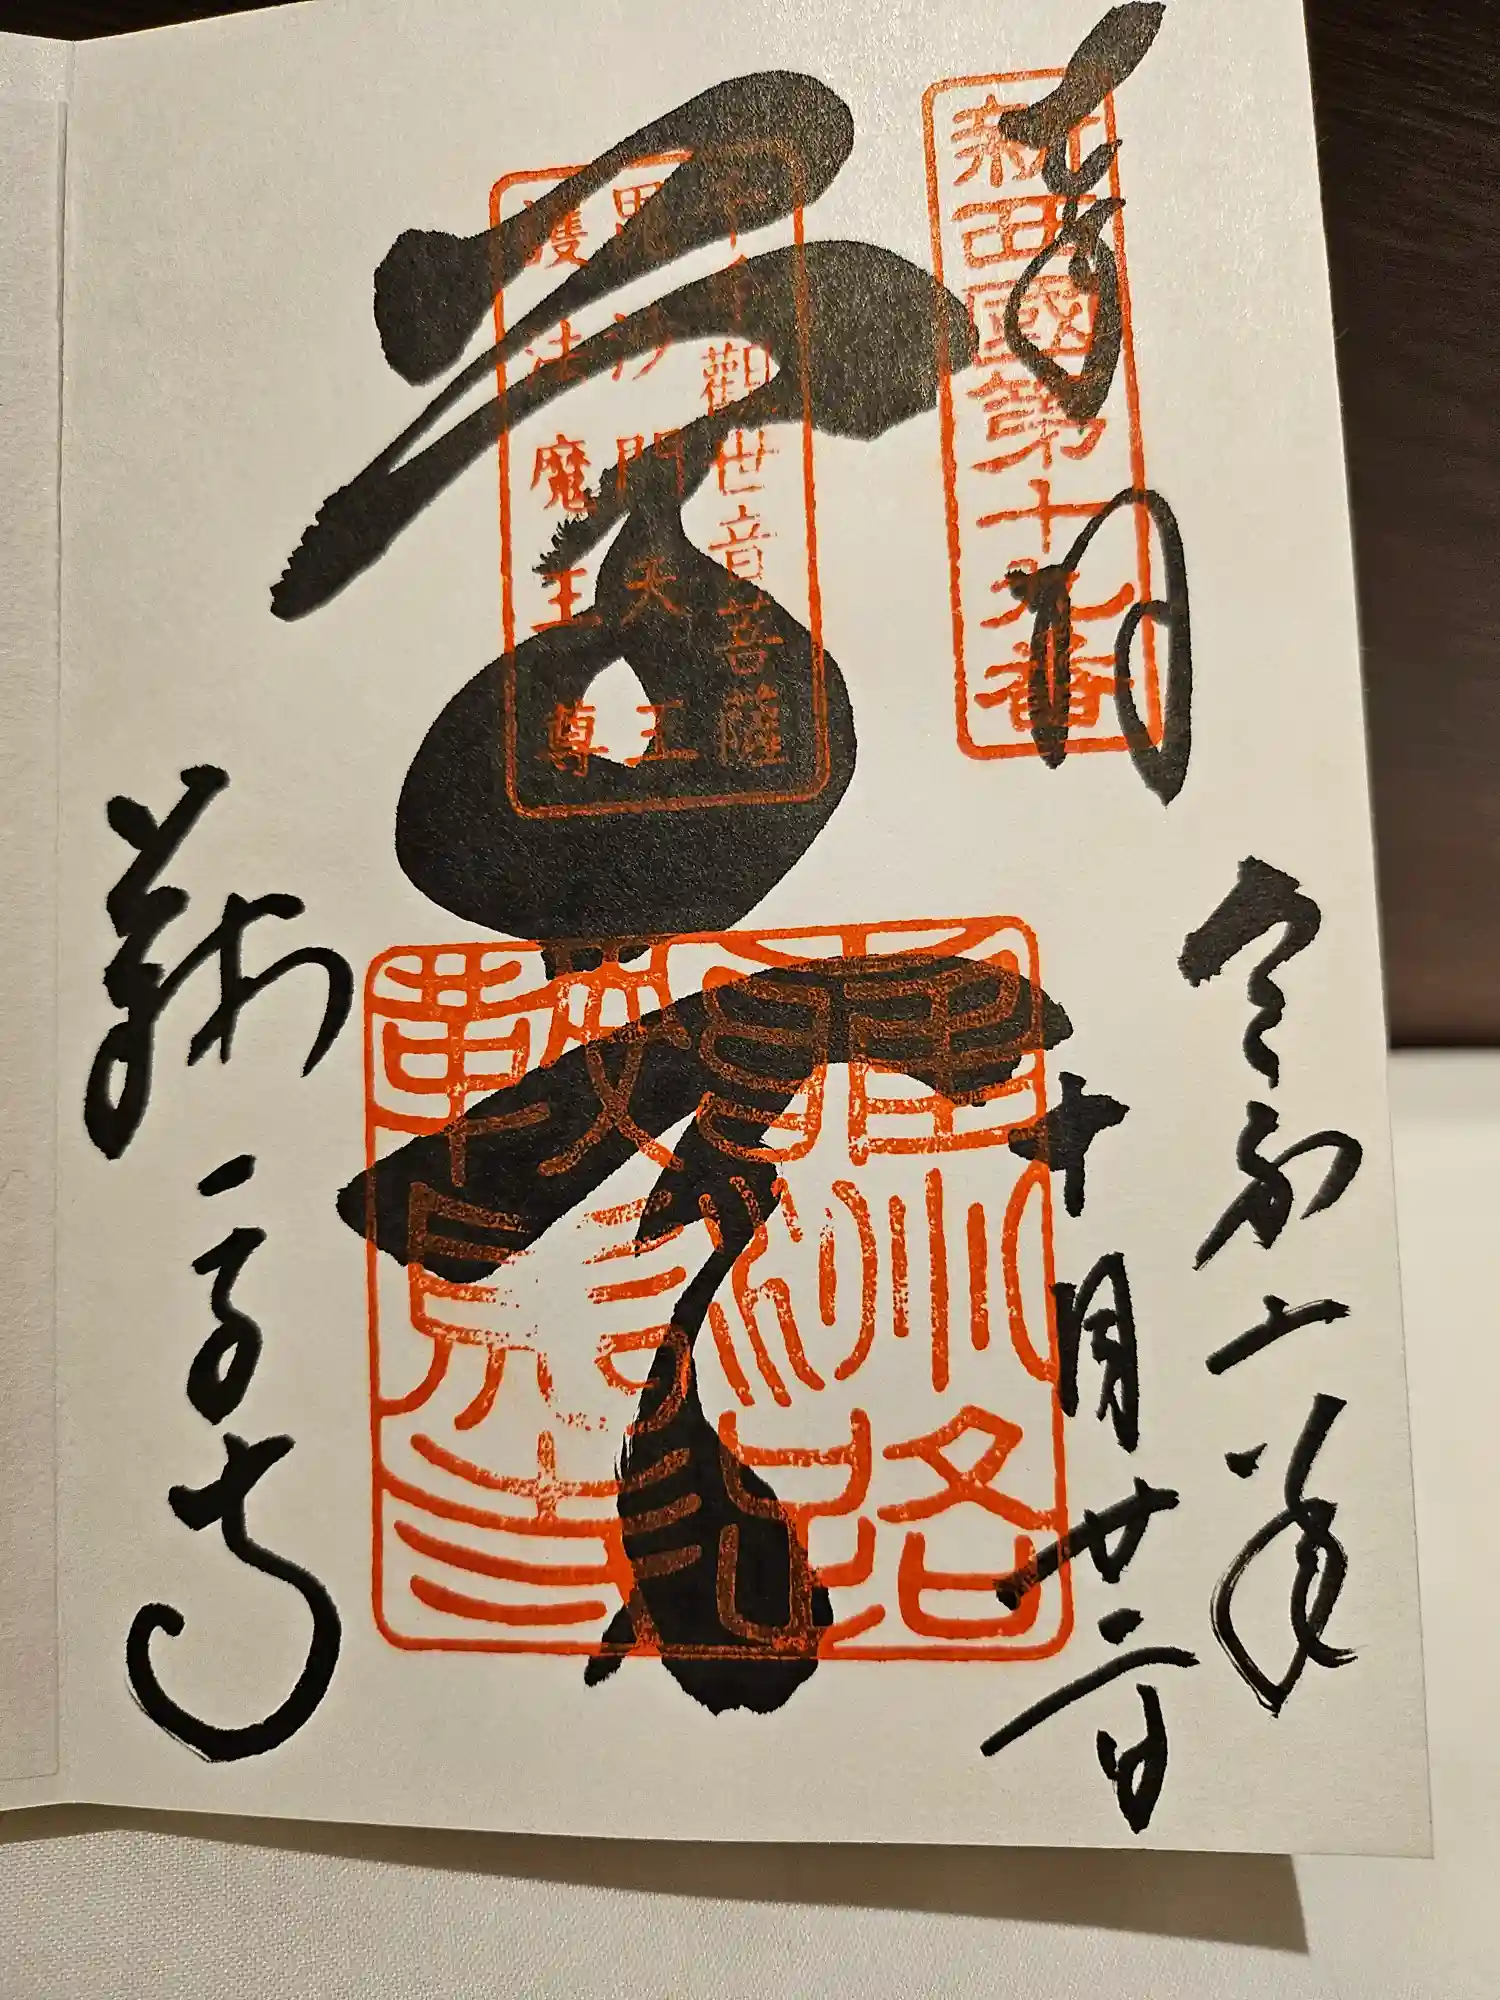 新西國第十九番
奉拝
令和六年
十月廿二日
千手觀世音菩薩
毘沙門天王
護法魔王尊
尊天
鞍馬寺